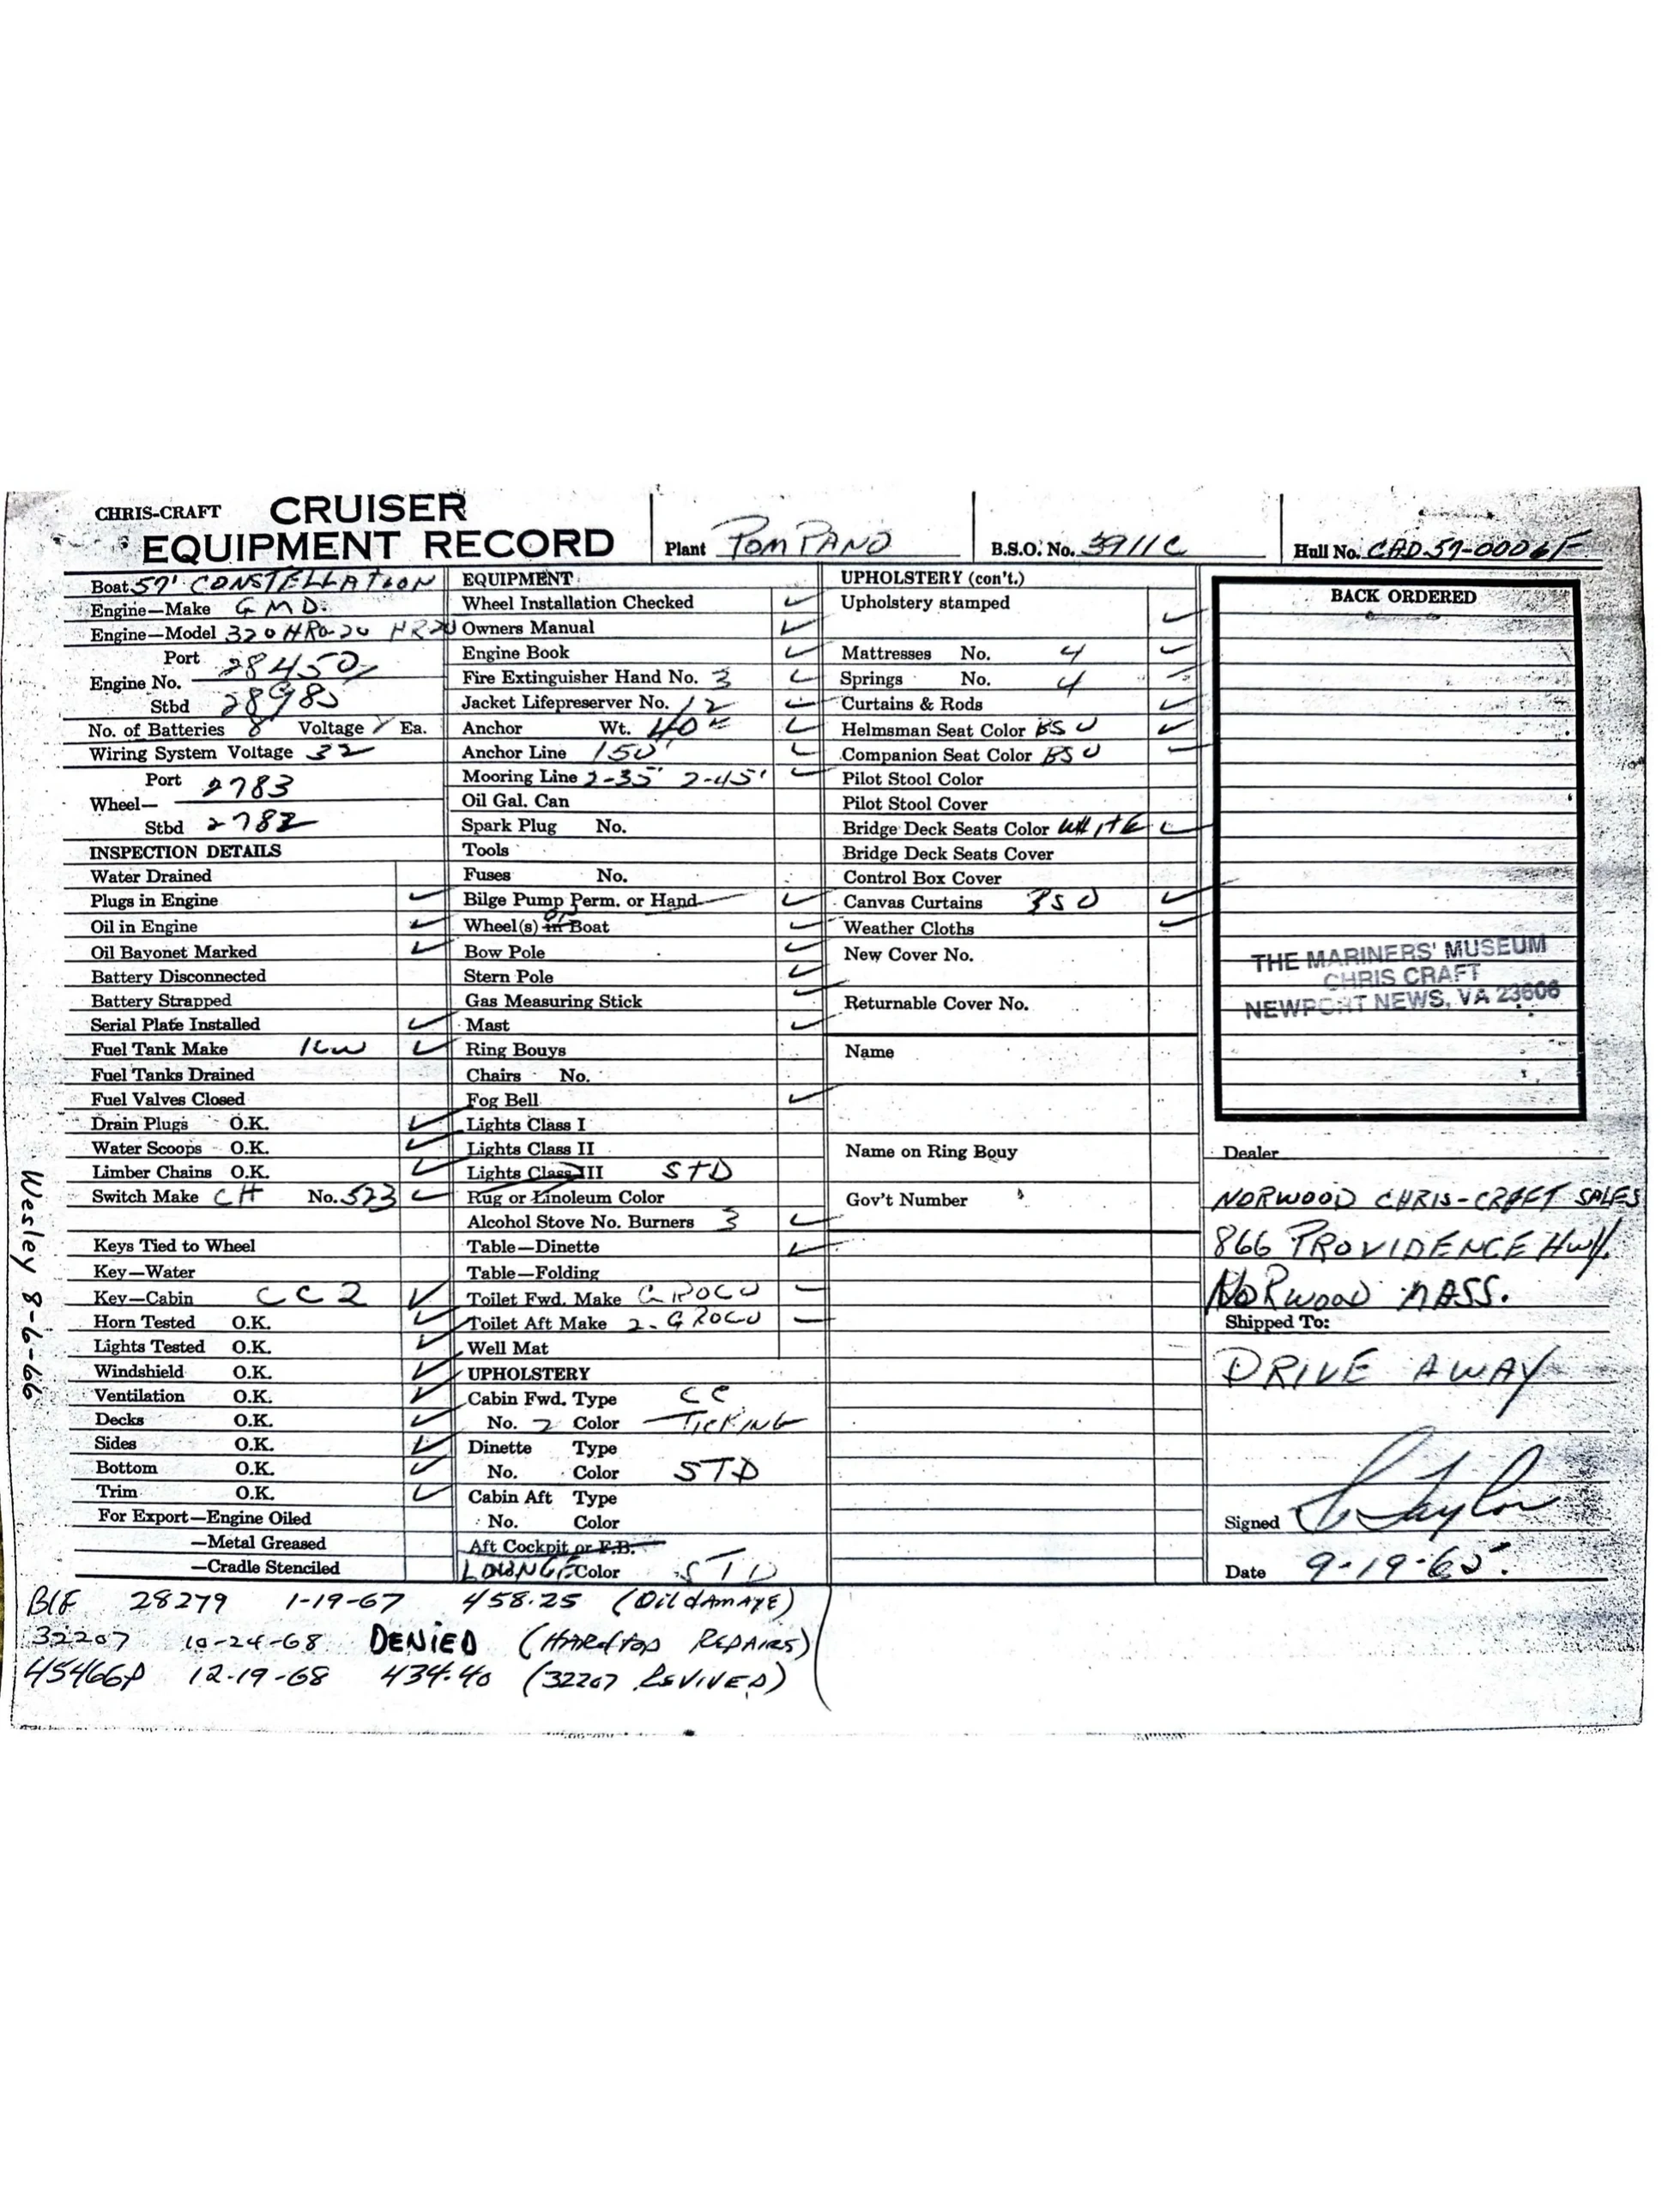 CHRIS-CRAFT CRUISER
EQUIPMENT RECORD
Plant POMPANO
B.S.O. No. 3911C
Hull No. CAD-57-0006F
Boat 57' CONSTELLATION
Engine—Make GMD.
Engine—Model 320HR0-20 HR20
Port
Engine No.
Stbd 28985
No. of Batteries 8 Voltage Ea.
Wiring System Voltage 32
Port 2783
Wheel—
Stbd 2782
INSPECTION DETAILS
Water Drained
Plugs in Engine ✓
Oil in Engine ✓
Oil Bayonet Marked ✓
Battery Disconnected
Battery Strapped
Serial Plate Installed ✓
Fuel Tank Make ✓
Fuel Tanks Drained
Fuel Valves Closed
Drain Plugs O.K. ✓
Water Scoops O.K. ✓
Limber Chains O.K. ✓
Switch Make CH No. 523 ✓
Keys Tied to Wheel
Key—Water
Key—Cabin CC2 ✓
Horn Tested O.K. ✓
Lights Tested O.K. ✓
Windshield O.K. ✓
Ventilation O.K. ✓
Decks O.K. ✓
Sides O.K. ✓
Bottom O.K. ✓
Trim O.K. ✓
For Export—Engine Oiled
—Metal Greased
—Cradle Stenciled
EQUIPMENT
Wheel Installation Checked ✓
Owners Manual ✓
Engine Book ✓
Fire Extinguisher Hand No. 3 ✓
Jacket Lifepreserver No. 12 ✓
Anchor Wt. 40# ✓
Anchor Line 150' ✓
Mooring Line 2-35' 2-45' ✓
Oil Gal. Can
Spark Plug No.
Tools
Fuses No.
Bilge Pump Perm. or Hand ✓
Wheel(s) in on Boat ✓
Bow Pole ✓
Stern Pole ✓
Gas Measuring Stick ✓
Mast ✓
Ring Bouys
Chairs No.
Fog Bell ✓
Lights Class I
Lights Class II
Lights Class III STD
Rug or Linoleum Color
Alcohol Stove No. Burners 3 ✓
Table—Dinette ✓
Table—Folding
Toilet Fwd. Make GROCO ✓
Toilet Aft Make 2-GROCO ✓
Well Mat
UPHOLSTERY
Cabin Fwd. Type CC
No. 2 Color TICKING
Dinette Type
No. Color STD
Cabin Aft Type
No. Color
Aft Cockpit or F.B.
LOUNGE Color STD
UPHOLSTERY (con't.)
Upholstery stamped ✓
Mattresses No. 4 ✓
Springs No. 4 ✓
Curtains & Rods ✓
Helmsman Seat Color BSO ✓
Companion Seat Color BSO ✓
Pilot Stool Color
Pilot Stool Cover
Bridge Deck Seats Color WHITE ✓
Bridge Deck Seats Cover
Control Box Cover
Canvas Curtains BSO ✓
Weather Cloths ✓
New Cover No.
Returnable Cover No.
Name
Name on Ring Bouy
Gov't Number
BACK ORDERED
THE MARINERS' MUSEUM
CHRIS CRAFT
NEWPORT NEWS, VA 23606
Dealer
NORWOOD CHRIS-CRAFT SALES
866 PROVIDENCE HWY.
NORWOOD MASS.
Shipped To:
DRIVE AWAY
Signed Taylor
Date 9-19-65.
28279 1-19-67 458.25 (Oil dAMAGE)
32207 10-24-68 DENIED (HARdtop REPAIRS)
45466P 12-19-68 434.40 (32207 REVIVED)
Wesley 8-6-66